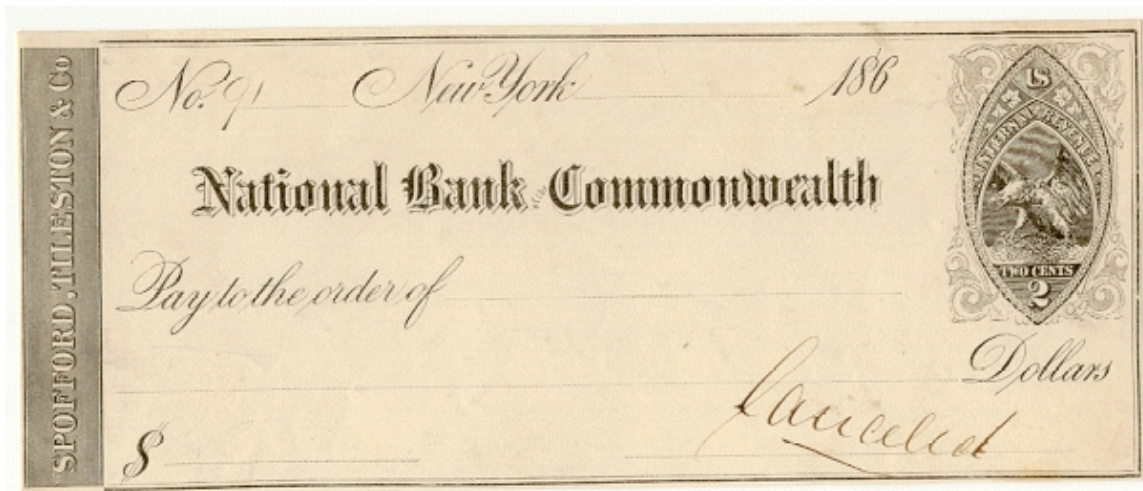 SPOFFORD, TILESTON & Co
No. 91 New York 186
National Bank of the Commonwealth
Pay to the order of
Dollars
$
Canceled
US
INTERNAL REVENUE
TWO CENTS
2